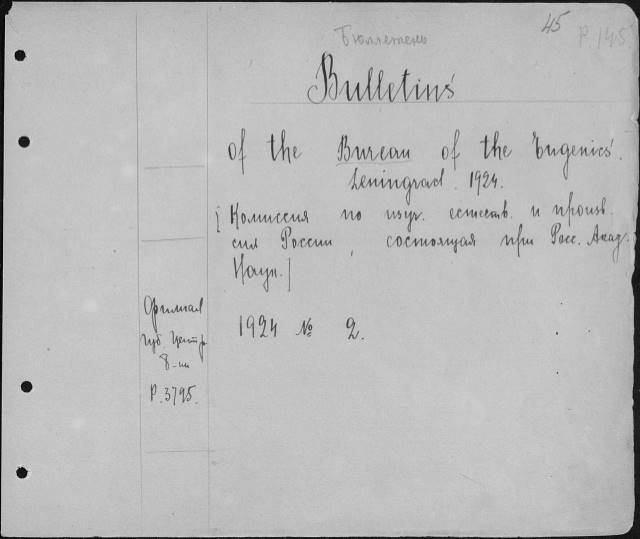 45
Р.145
Бюллетень
Bulletins'
of the Bureau of the Eugenics'.
Leningrad. 1924.
[Комиссия по изуч. естеств. и произв.
сил России, состоящая при Росс. Акад.
Наук.]
1924 № 2.
Филиал
губ. Центр.
8-ки
Р.3795.